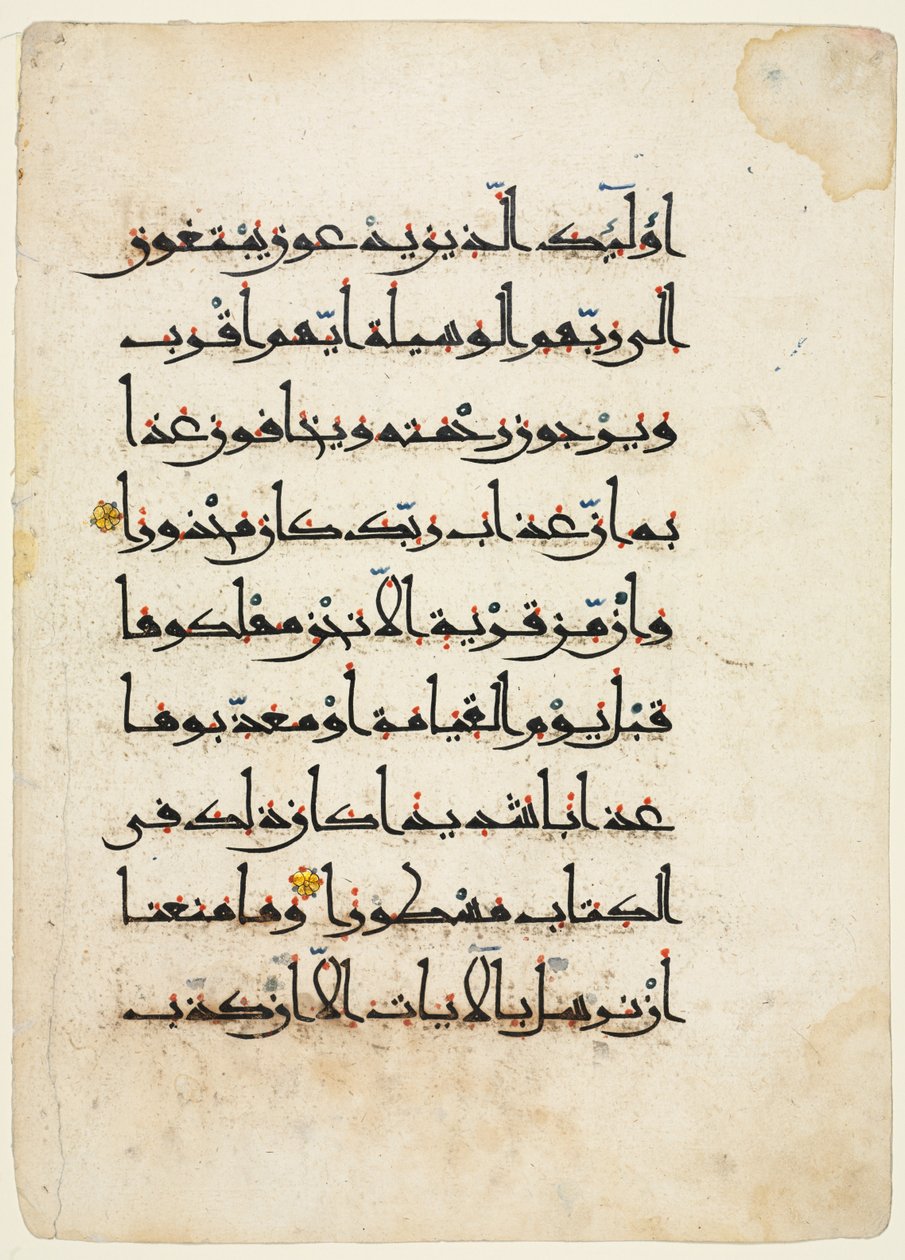 اولئك الّذين يدعون يبتغون
الى ربّهم الوسيلة ايّهم اقرب
ويرجون رحمته ويخافون عذا
به انّ عذاب ربّك كان محذورا
وان مّن قرية الّا نحن مهلكوها
قبل يوم القيامة او معذّبوها
عذابا شديدا كان ذلك فى
الكتاب مسطورا وما منعنا
ان نرسل بالآيات الّا ان كذّب